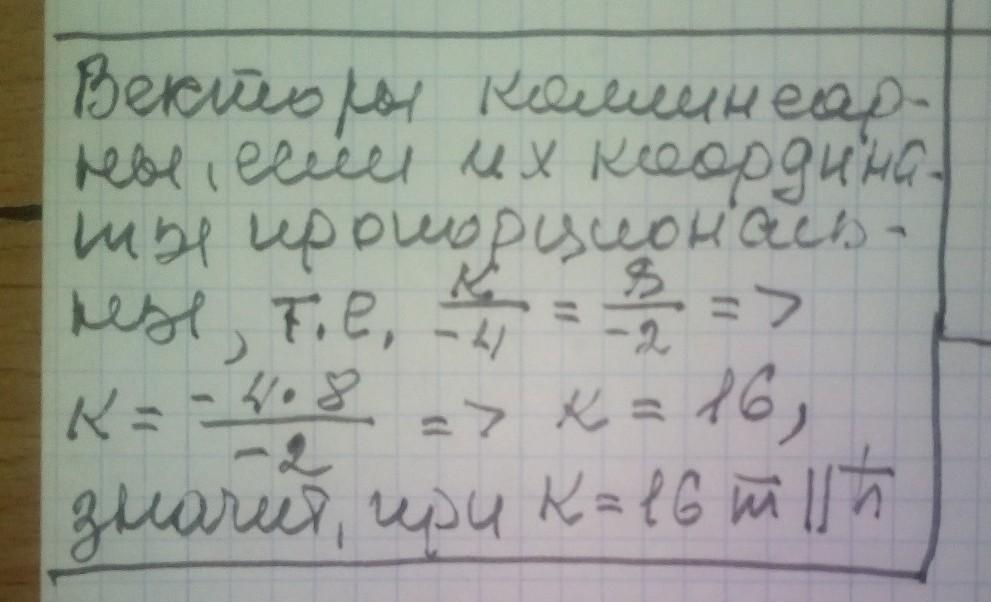 Векторы коллинеар-
ны, если их координа-
ты пропорциональ-
ны, т.е. к/-4 = 8/-2 =>
к = -4·8/-2 => к = 16,
значит, при к=16 m̅ || n̅